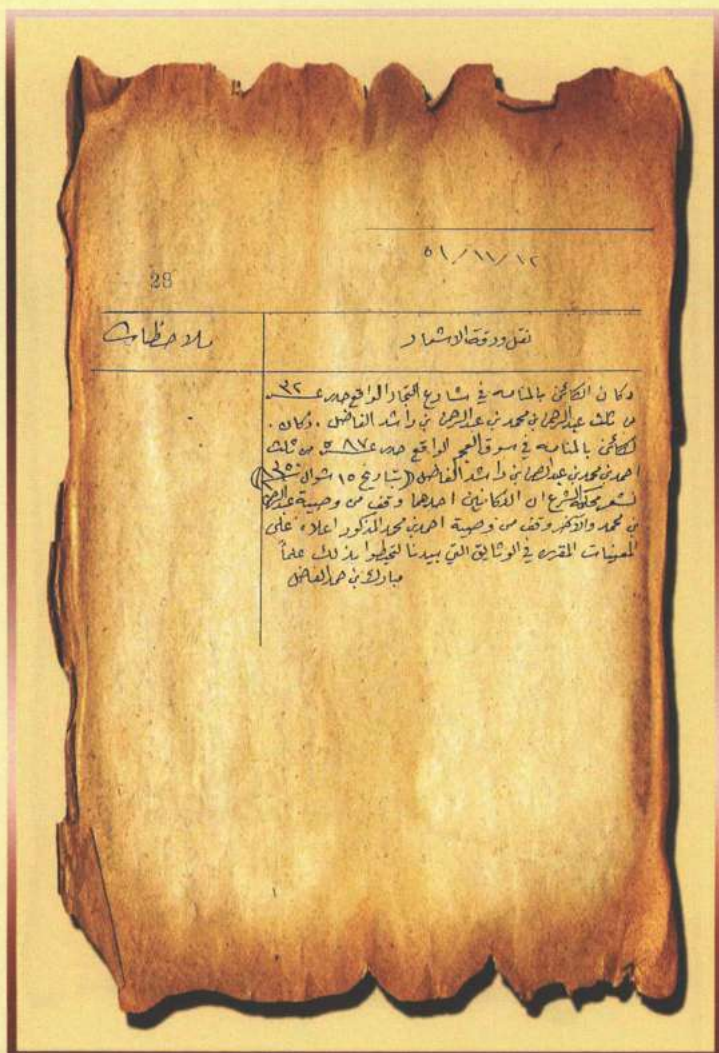 ٥١/١١/١٢
28
نقل ورقة الاشعار
ملاحظات
دكان الكائن بالمنامه في شارع التجار الواقع ٣٢
من ثلث عبدالرحمن بن محمد بن عبدالرحمن بن راشد الفاضل . دكان .
الكائن بالمنامه في سوق العجم الواقع ٥٨٧ من ثلث
احمد بن محمد بن عبدالرحمن بن راشد الفاضل (بتاريخ ١٥ شوال
لشعر محكمة الشرع ان الدكانين احدهما وقف من وصية عبدالرحمن
بن محمد والآخر وقف من وصية احمد بن محمد المذكور اعلاه على
المعينات المقرره في الوثايق التي بيدنا لتحيطوا بذلك علماً
مبارك بن حمد الفاضل